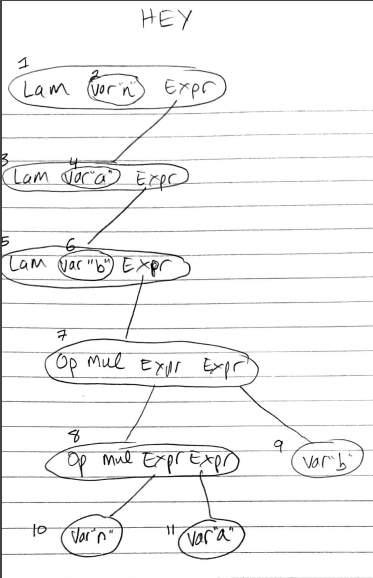 HEY
1
2
Lam Var"n" Expr
3
4
Lam Var"a" Expr
5
6
Lam Var"b" Expr
7
Op Mul Expr Expr
8
Op Mul Expr Expr
9
Var"b"
10
Var"n"
11
Var"a"